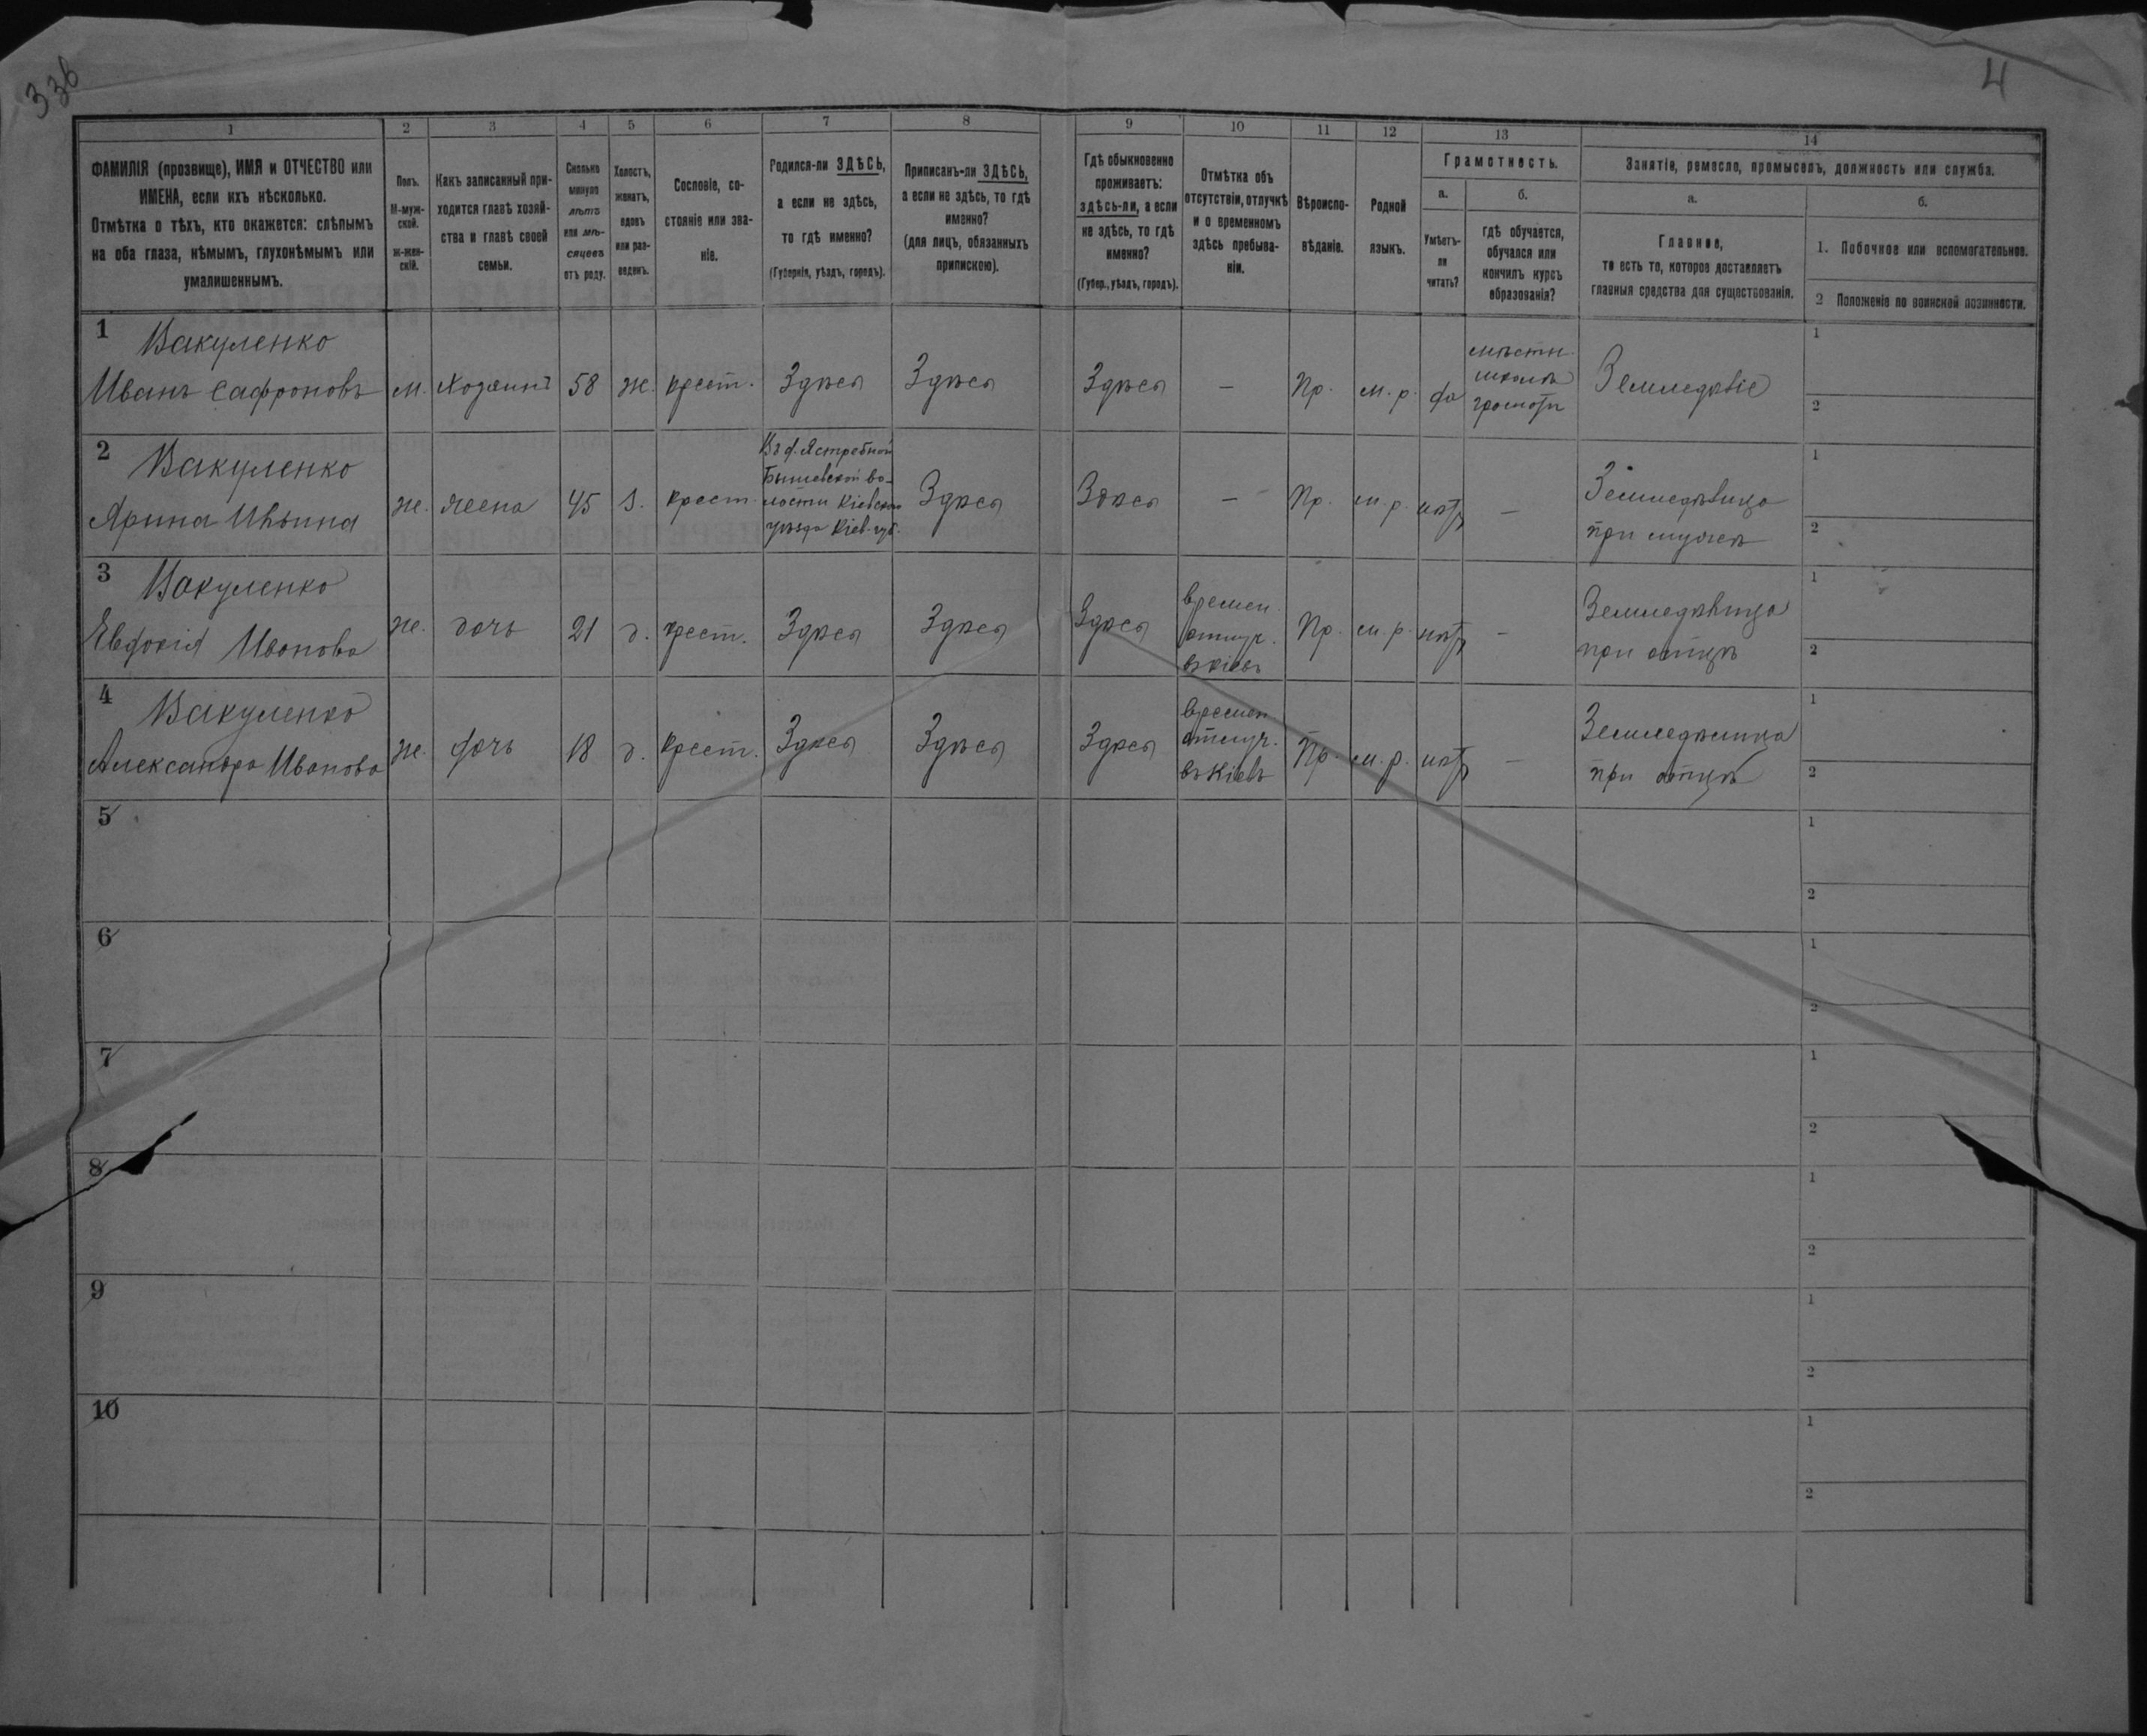 336
4
1
2
3
4
5
6
7
8
9
10
11
12
13
14
ФАМИЛІЯ (прозвище), ИМЯ и ОТЧЕСТВО или
ИМЕНА, если ихъ нѣсколько.
Отмѣтка о тѣхъ, кто окажется: слѣпымъ
на оба глаза, нѣмымъ, глухонѣмымъ или
умалишеннымъ.
Полъ.
М-муж-
ской.
ж-жен-
скій.
Какъ записанный при-
ходится главѣ хозяй-
ства и главѣ своей
семьи.
Сколько
минуло
лѣтъ
или мѣ-
сяцевъ
отъ роду.
Холостъ,
женатъ,
вдовъ
или раз-
веденъ.
Сословіе, со-
стояніе или зва-
ніе.
Родился-ли ЗДѢСЬ,
а если не здѣсь,
то гдѣ именно?
(Губернія, уѣздъ, городъ).
Приписанъ-ли ЗДѢСЬ,
а если не здѣсь, то гдѣ
именно?
(для лицъ, обязанныхъ
припискою).
Гдѣ обыкновенно
проживаетъ:
здѣсь-ли, а если
не здѣсь, то гдѣ
именно?
(Губер., уѣздъ, городъ).
Отмѣтка объ
отсутствіи, отлучкѣ
и о временномъ
здѣсь пребыва-
ніи.
Вѣроиспо-
вѣданіе.
Родной
языкъ.
Грамотность.
а.
Умѣетъ-
ли
читать?
б.
гдѣ обучается,
обучался или
кончилъ курсъ
образованія?
Занятіе, ремесло, промыселъ, должность или служба.
а.
Главное,
то есть то, которое доставляетъ
главныя средства для существованія.
б.
1. Побочное или вспомогательное.
2 Положеніе по воинской повинности.
1 Вакуленко
Иванъ Сафроновъ
м.
Хозяинъ
58
ж.
крест.
Здѣсь
Здѣсь
Здѣсь
—
Пр.
м. р.
да
мѣстн.
школѣ
грамоты
Земледѣліе
1
2
2 Вакуленко
Ярина Ильина
ж.
жена
45
з.
крест.
Въ д. Ястребной
Бышевской во-
лости Кіевскаго
уѣзда Кіев. губ.
Здѣсь
Здѣсь
—
Пр.
м. р.
нѣтъ
—
Земледѣлица
при мужѣ
1
2
3 Вакуленко
Евдокія Иванова
ж.
дочь
21
д.
крест.
Здѣсь
Здѣсь
Здѣсь
времен.
отлуч.
въ Кіевъ
Пр.
м. р.
нѣтъ
—
Земледѣлица
при отцѣ
1
2
4 Вакуленко
Александра Иванова
ж.
дочь
18
д.
крест.
Здѣсь
Здѣсь
Здѣсь
времен
отлуч.
въ Кіевъ
Пр.
м. р.
нѣтъ
—
Земледѣлица
при отцѣ
1
2
5
1
2
6
1
2
7
1
2
8
1
2
9
1
2
10
1
2